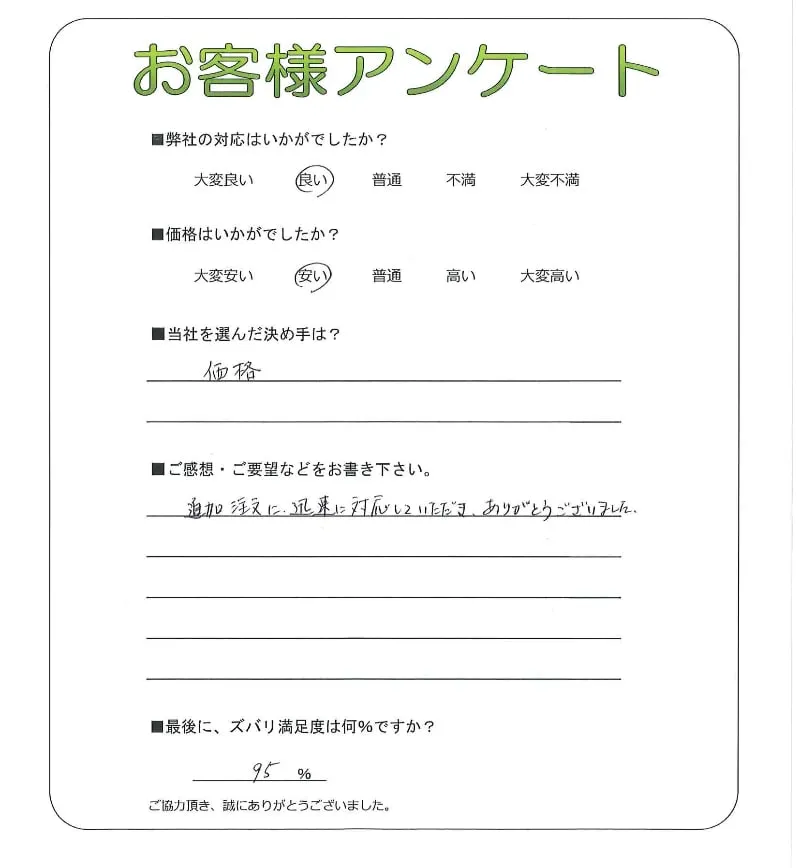 お客様アンケート
■弊社の対応はいかがでしたか？
大変良い 良い 普通 不満 大変不満
■価格はいかがでしたか？
大変安い 安い 普通 高い 大変高い
■当社を選んだ決め手は？
価格
■ご感想・ご要望などをお書き下さい。
追加注文に、迅速に対応していただき、ありがとうございました。
■最後に、ズバリ満足度は何%ですか？
95 %
ご協力頂き、誠にありがとうございました。